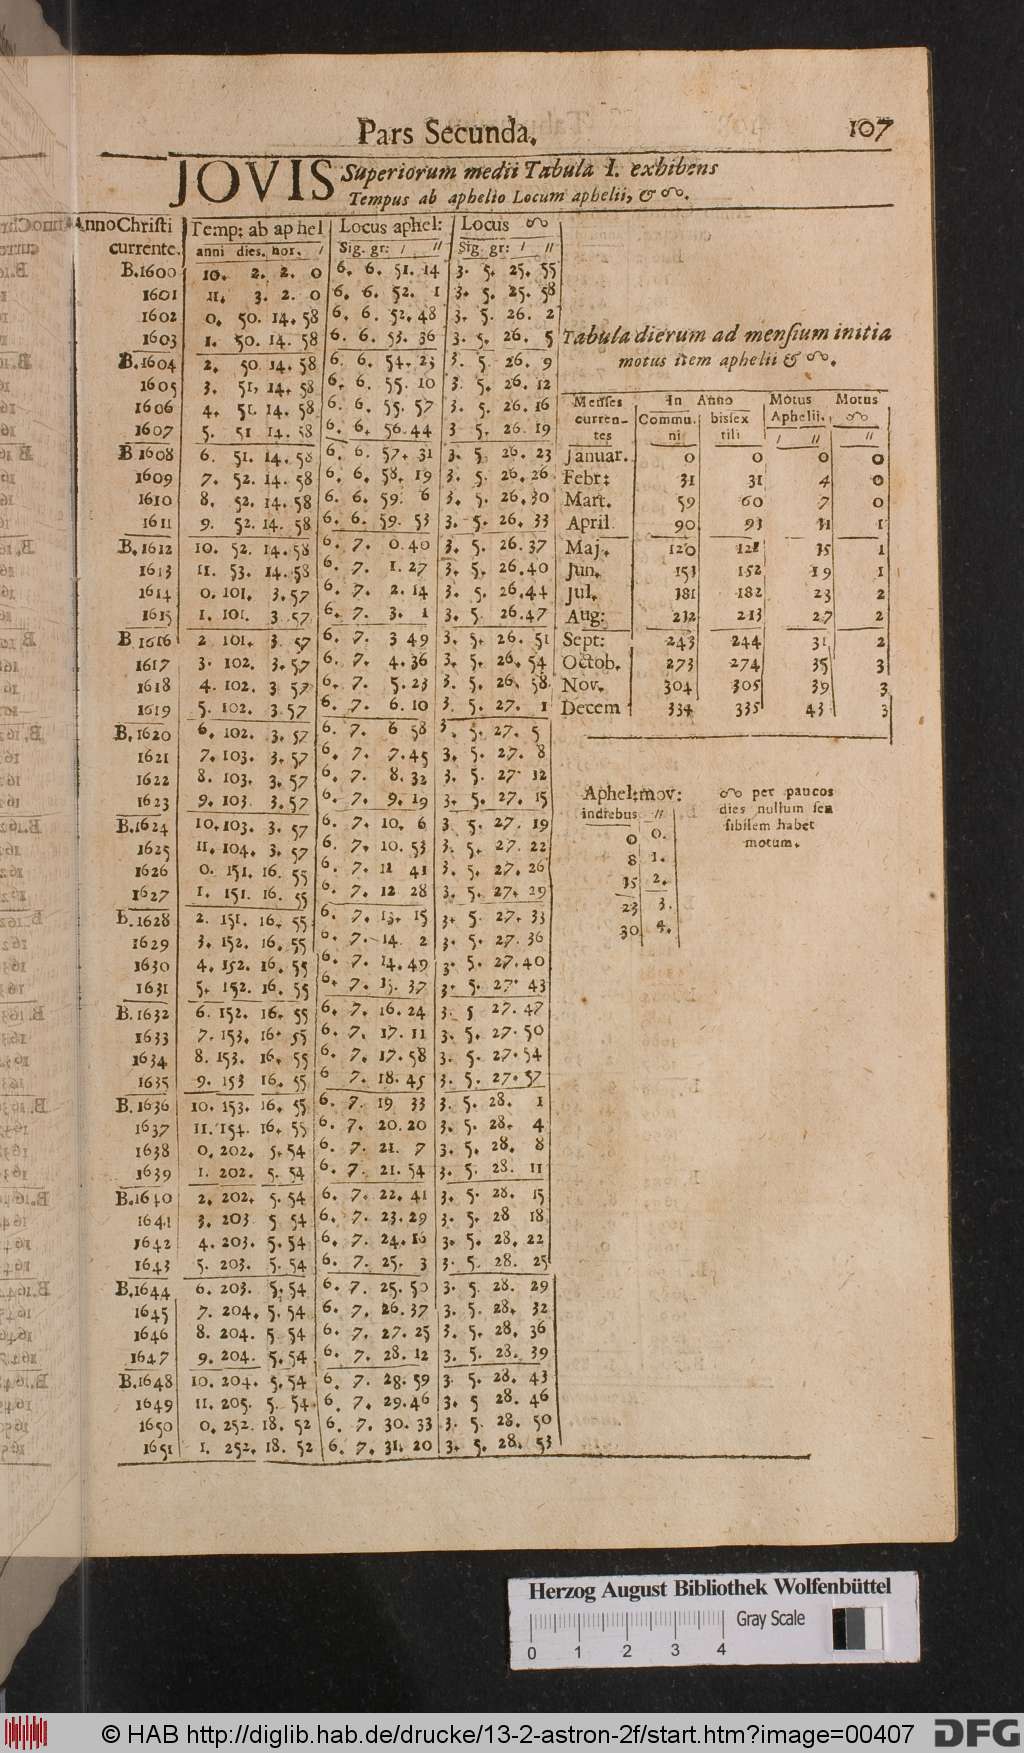 Pars Secunda.
107
JOVIS Superiorum medii Tabula I. exhibens
Tempus ab aphelio Locum aphelii, & ☊.
Anno Christi currente. | Temp: ab aphel anni dies. hor. ′ | Locus aphel: Sig. gr: ′ ″ | Locus ☊ Sig. gr: ′ ″
B.1600 10. 2. 2. 0 6. 6. 51. 14 3. 5. 25. 55
1601 11. 3. 2. 0 6. 6. 52. 1 3. 5. 25. 58
1602 0. 50. 14. 58 6. 6. 52. 48 3. 5. 26. 2
1603 1. 50. 14. 58 6. 6. 53. 36 3. 5. 26. 5
B.1604 2. 50 14. 58 6. 6. 54. 23 3. 5 26. 9
1605 3. 51, 14. 58 6. 6. 55. 10 3. 5. 26. 12
1606 4. 51. 14. 58 6. 6. 55. 57 3. 5. 26. 16
1607 5. 51 14. 58 6. 6. 56. 44 3 5. 26. 19
B 1608 6. 51. 14. 58 6. 6. 57. 31 3. 5 26. 23
1609 7. 52. 14. 58 6. 6. 58. 19 3. 5. 26. 26
1610 8. 52. 14. 58 6. 6. 59. 6 3. 5. 26. 30
1611 9. 52. 14. 58 6. 6. 59. 53 3. 5. 26. 33
B. 1612 10. 52. 14. 58 6. 7. 0. 40 3. 5. 26. 37
1613 11. 53. 14. 58 6. 7. 1. 27 3. 5. 26. 40
1614 0. 101. 3. 57 6. 7. 2. 14 3. 5. 26. 44
1615 1. 101. 3 57 6. 7. 3. 1 3. 5. 26. 47
B 1616 2 101. 3. 57 6. 7. 3 49 3. 5. 26. 51
1617 3. 102. 3. 57 6. 7. 4. 36 3. 5. 26. 54
1618 4. 102. 3 57 6. 7. 5. 23 3. 5. 26. 58
1619 5. 102. 3. 57 6. 7. 6. 10 3. 5. 27. 1
B. 1620 6. 102. 3. 57 6. 7. 6 58 3. 5. 27. 5
1621 7. 103. 3. 57 6. 7. 7. 45 3. 5. 27. 8
1622 8. 103. 3. 57 6. 7. 8. 32 3. 5. 27. 12
1623 9. 103 3. 57 6. 7. 9. 19 3. 5. 27. 15
B.1624 10. 103. 3. 57 6. 7. 10. 6 3 5. 27. 19
1625 11. 104. 3. 57 6. 7. 10. 53 3. 5. 27. 22
1626 0. 151. 16. 55 6. 7. 11 41 3. 5. 27. 26
1627 1. 151. 16. 55 6. 7. 12 28 3. 5. 27. 29
B.1628 2. 151. 16. 55 6. 7. 13. 15 3. 5 27. 33
1629 3. 152. 16. 55 6. 7. 14. 2 3. 5. 27. 36
1630 4. 152. 16. 55 6. 7. 14. 49 3. 5. 27. 40
1631 5. 152. 16. 55 6. 7. 15. 37 3. 5. 27. 43
B.1632 6. 152. 16. 55 6. 7. 16. 24 3. 5 27. 47
1633 7. 153. 16. 55 6. 7. 17. 11 3. 5. 27. 50
1634 8. 153. 16. 55 6. 7. 17. 58 3. 5. 27. 54
1635 9. 153 16. 55 6 7. 18. 45 3. 5. 27. 57
B. 1636 10. 153. 16. 55 6. 7. 19 33 3. 5. 28. 1
1637 11. 154. 16. 55 6. 7. 20. 20 3. 5. 28. 4
1638 0. 202. 5. 54 6. 7. 21. 7 3. 5. 28. 8
1639 1. 202. 5. 54 6. 7. 21. 54 3. 5. 28. 11
B.1640 2. 202. 5. 54 6. 7. 22. 41 3. 5. 28. 15
1641 3. 203 5 54 6. 7. 23. 29 3. 5. 28 18
1642 4. 203. 5. 54 6. 7. 24. 16 3. 5. 28. 22
1643 5. 203. 5. 54 6. 7. 25. 3 3. 5. 28. 25
B.1644 6. 203. 5. 54 6. 7. 25. 50 3. 5 28. 29
1645 7. 204. 5. 54 6. 7. 26. 37 3. 5. 28. 32
1646 8. 204. 5 54 6. 7. 27. 25 3. 5. 28. 36
1647 9. 204. 5. 54 6. 7. 28. 12 3. 5. 28. 39
B.1648 10. 204. 5. 54 6. 7. 28. 59 3. 5. 28. 43
1649 11. 205. 5. 54 6. 7. 29. 46 3. 5 28. 46
1650 0. 252. 18. 52 6. 7. 30. 33 3. 5. 28. 50
1651 1. 252. 18. 52 6. 7. 31. 20 3. 5. 28. 53
Tabula dierum ad mensium initia
motus item aphelii & ☊.
Menses curren-tes | In Anno Commu.ni | bissextili | Motus Aphelii. ′ ″ | Motus ☊ ″
Januar. 0 0 0 0
Febr: 31 31 4 0
Mart. 59 60 7 0
April 90 91 11 1
Maj. 120 121 15 1
Jun. 151 152 19 1
Jul. 181 182 23 2
Aug: 212 213 27 2
Sept: 243 244 31 2
Octob. 273 274 35 3
Nov. 304 305 39 3
Decem 334 335 43 3
Aphel: mov:
in diebus ″
0 0.
8 1.
15 2.
23 3.
30 4.
☊ per paucos
dies nullum sen
sibilem habet
motum.
Herzog August Bibliothek Wolfenbüttel
Gray Scale
0 1 2 3 4
© HAB http://diglib.hab.de/drucke/13-2-astron-2f/start.htm?image=00407
DFG